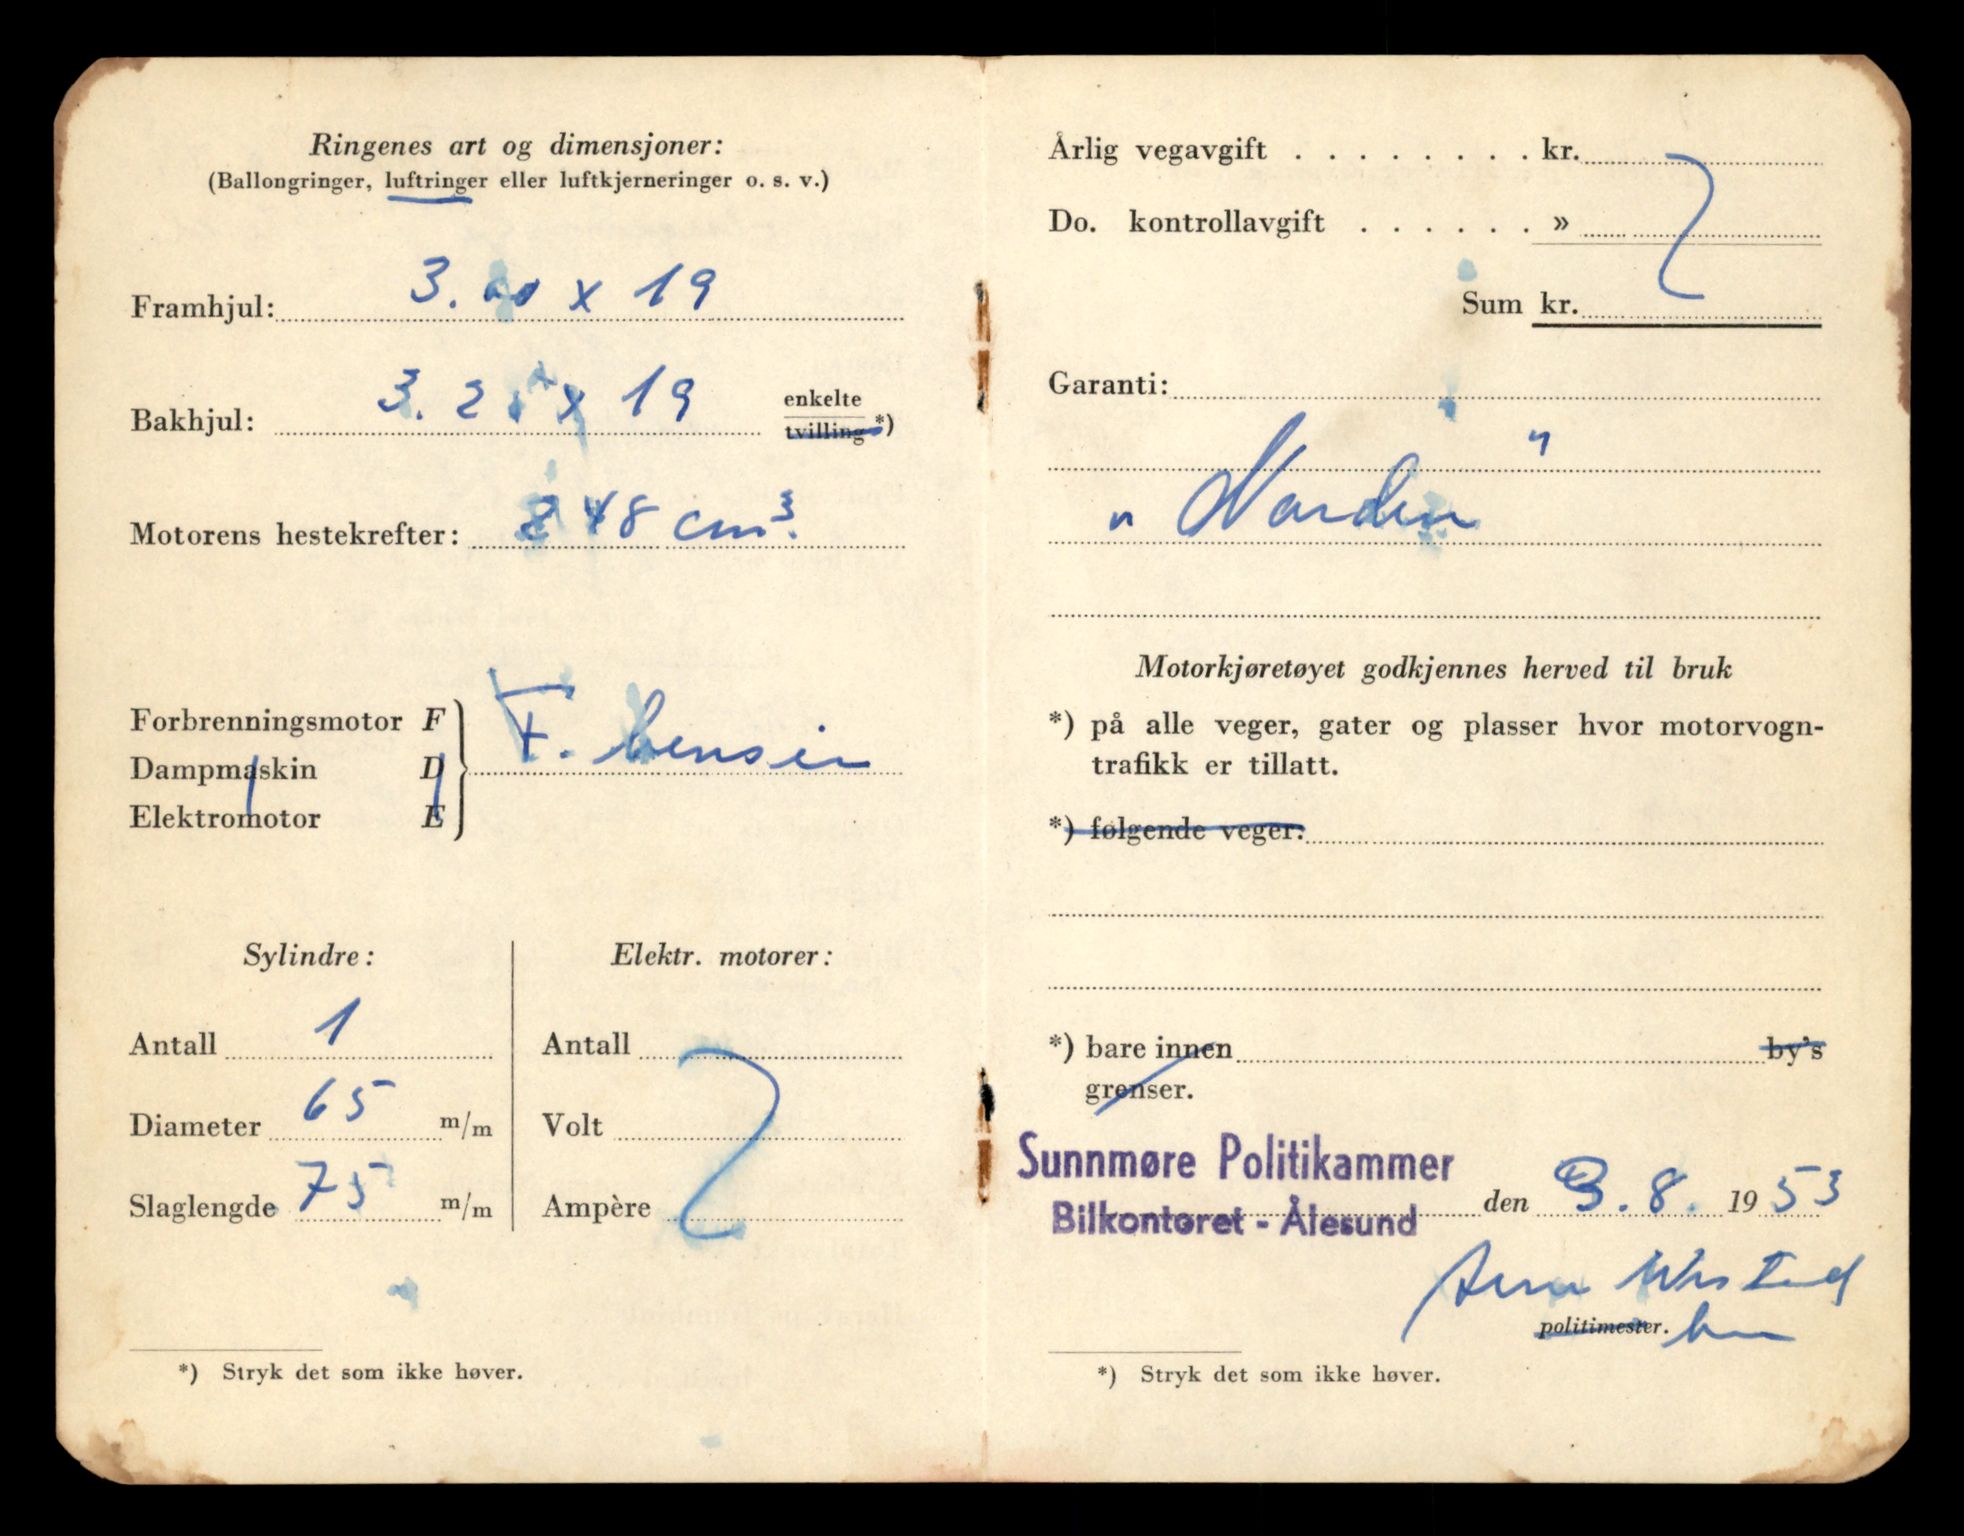 Ringenes art og dimensjoner:
(Ballongringer, luftringer eller luftkjerneringer o. s. v.)
Framhjul: 3.00 x 19
Bakhjul: 3.25 x 19 enkelte
tvilling *)
Motorens hestekrefter: 248 cm³.
Forbrenningsmotor F
Dampmaskin D
Elektromotor E
F. bensin
Sylindre:
Antall 1
Diameter 65 m/m
Slaglengde 75 m/m
Elektr. motorer:
Antall
Volt
Ampère
*) Stryk det som ikke høver.
Årlig vegavgift . . . . . . . . kr.
Do. kontrollavgift . . . . . . »
Sum kr.
Garanti:
"Norden"
Motorkjøretøyet godkjennes herved til bruk
*) på alle veger, gater og plasser hvor motorvogn-
trafikk er tillatt.
*) følgende veger:
*) bare innen by's
grenser.
Sunnmøre Politikammer
Bilkontoret - Ålesund den 3.8. 1953
politimester.
*) Stryk det som ikke høver.